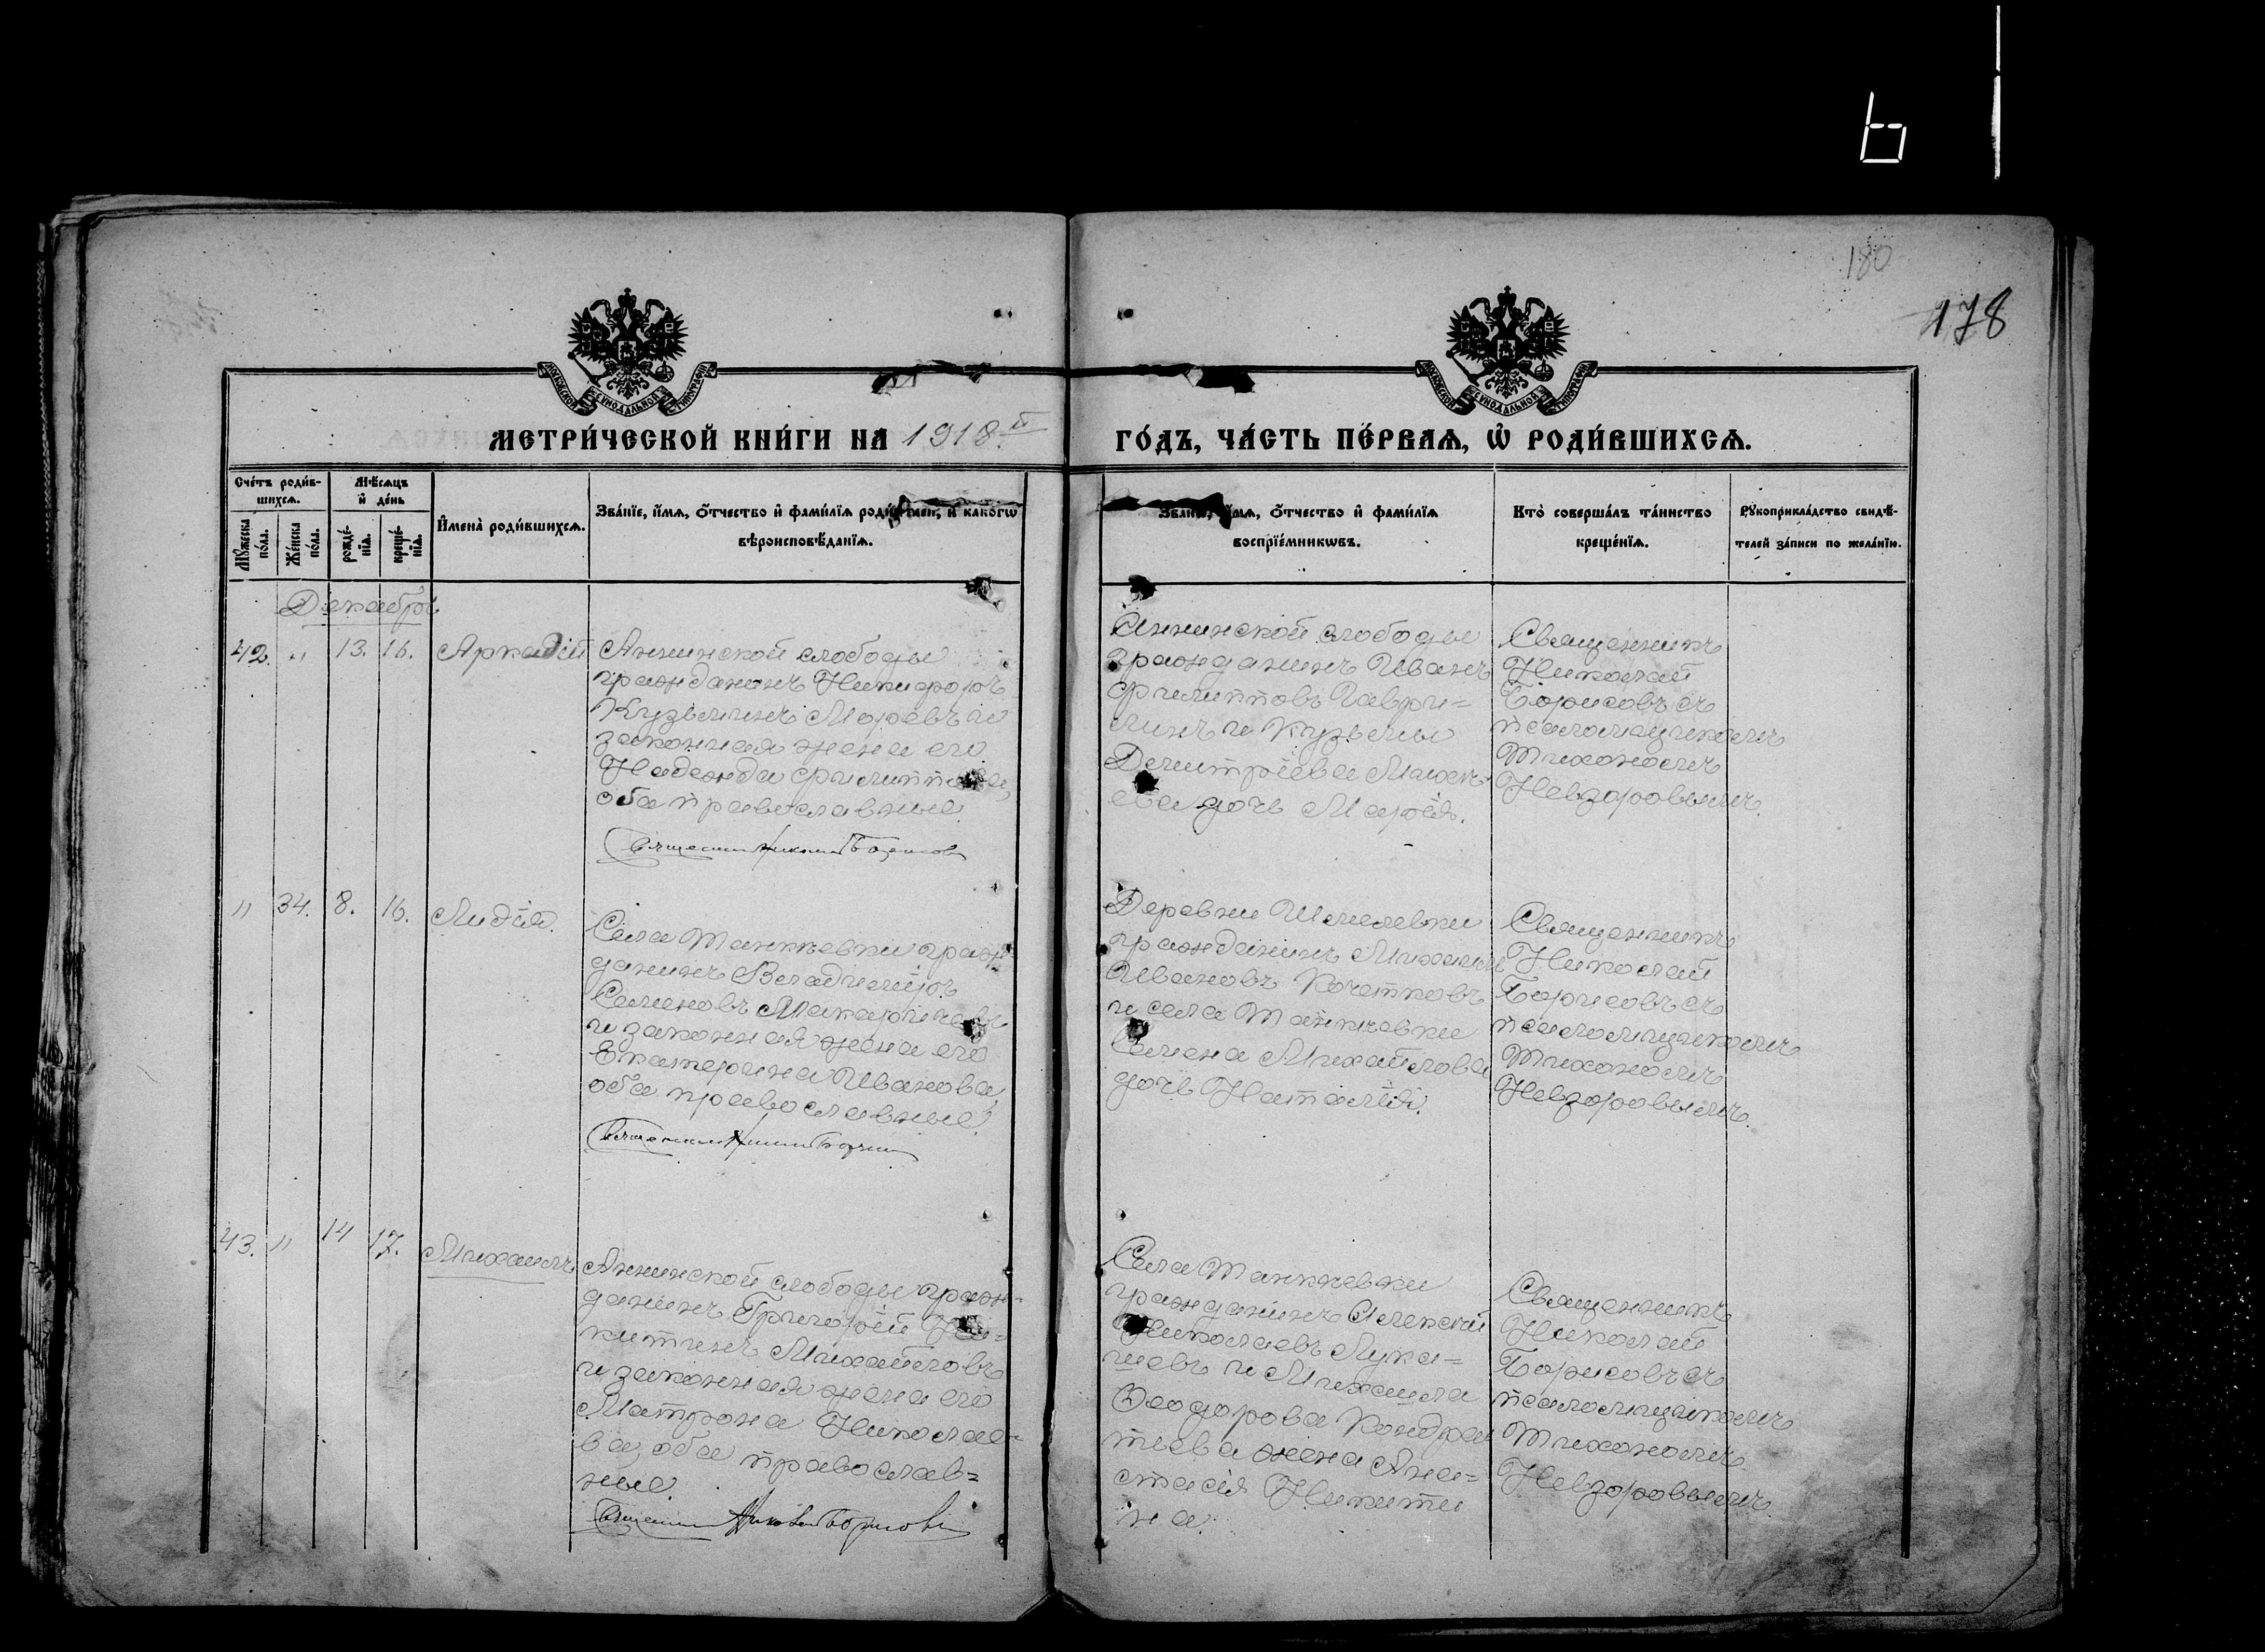 180
178
МОСКОВСКОЙ СѴНОДАЛЬНОЙ ТИПОГРАФІИ
МОСКОВСКОЙ СѴНОДАЛЬНОЙ ТИПОГРАФІИ
МЕТРИ́ЧЕСКОЙ КНИ́ГИ НА 1918.й
ГО́ДЪ, ЧА́СТЬ ПЕ́РВАѦ, Ѽ РОДИ́ВШИХСѦ.
Сче́тъ роди́в-
шихсѧ.
Мѣ́сѧцъ
и҆ де́нь
Мꙋ́жеска по́ла.
Же́нска по́ла.
рожде́-
нїѧ.
креще́-
нїѧ.
И҆мена̀ роди́вшихсѧ.
Зва́нїе, и҆́мѧ, ѻ҆́тчество и҆ фами́лїѧ роди́телей, и҆ како́гѡ
вѣроисповѣ́данїѧ.
Зва́нїе, и҆́мѧ, ѻ҆́тчество и҆ фами́лїѧ
воспрїе́мникѡвъ.
Кто̀ соверша́лъ та́инство
креще́нїѧ.
Рꙋкоприкла́дство свидѣ́-
телей за́писи по жела́нїю.
Декабрь
42. " 13. 16. Аркадій
Аннинской слободы
гражданинъ Никифоръ
Кузьминъ Моревъ и
законная жена его
Надежда Филиппова,
оба православные.
Священникъ Николай Борисовъ
Аннинской слободы
гражданинъ Иванъ
Филипповъ Гаври=
линъ и Кузьмы
Димитріева
дочь Марія.
Священникъ
Николай
Борисовъ съ
псаломщикомъ
Тихономъ
Невзоровымъ.
" 34. 8. 16. Лидія.
Села Танкѣевки граж-
данинъ Владиміръ
Семеновъ Макарычевъ
и законная жена его
Екатерина Иванова,
оба православные.
Священникъ Николай Борисовъ
Деревни Шмелевки
гражданинъ Михаилъ
Ивановъ Кочетковъ
и села Танкѣевки
Семена Михайлова
дочь Наталія.
Священникъ
Николай
Борисовъ съ
псаломщикомъ
Тихономъ
Невзоровымъ.
43. " 14 17. Михаилъ.
Аннинской слободы граж-
данинъ Григорій Ни=
китинъ Михайловъ
и законная жена его
Матрона Николае=
ва, оба православ=
ные.
Священникъ Николай Борисовъ
Села Танкѣевки
гражданинъ Алексѣй
Николаевъ Лука=
шевъ и Михаила
Ѳеодорова Кондра
тьева жена Ана=
стасія Никити
на.
Священникъ
Николай
Борисовъ съ
псаломщикомъ
Тихономъ
Невзоровымъ.